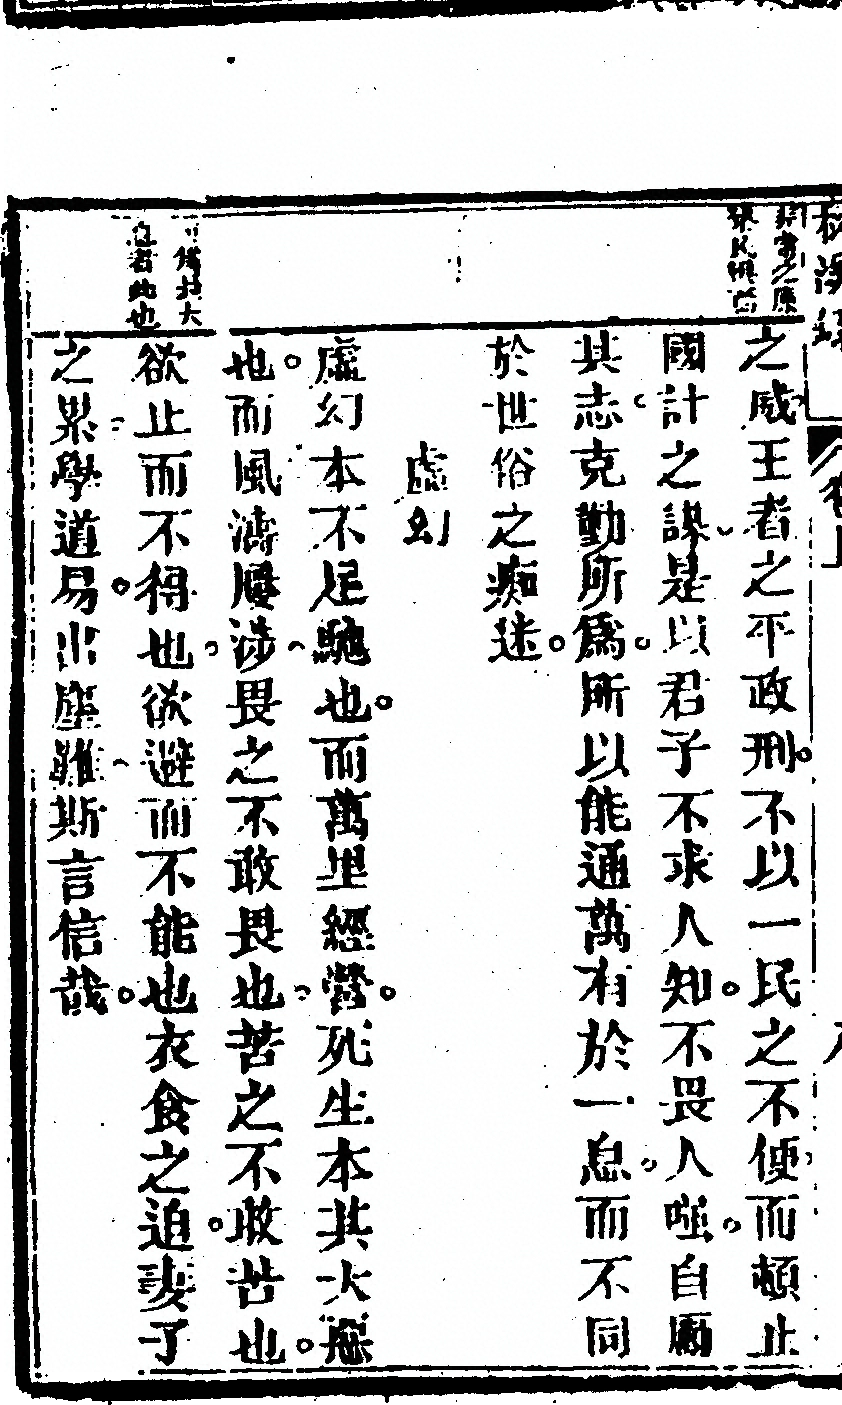 之威王者之平政刑不以一民之不便而頓止
國計之謀是以君子不求人知不畏人嗤自勵
其志克勤所爲所以能通萬有於一息而不同
於世俗之痴迷
虛幻
虛幻本不足馳也而萬里經營死生本其大惡
也而風濤屢涉畏之不敢畏也苦之不敢苦也
欲止而不得也欲避而不能也衣食之迫妻子
之累學道易出塵難斯言信哉